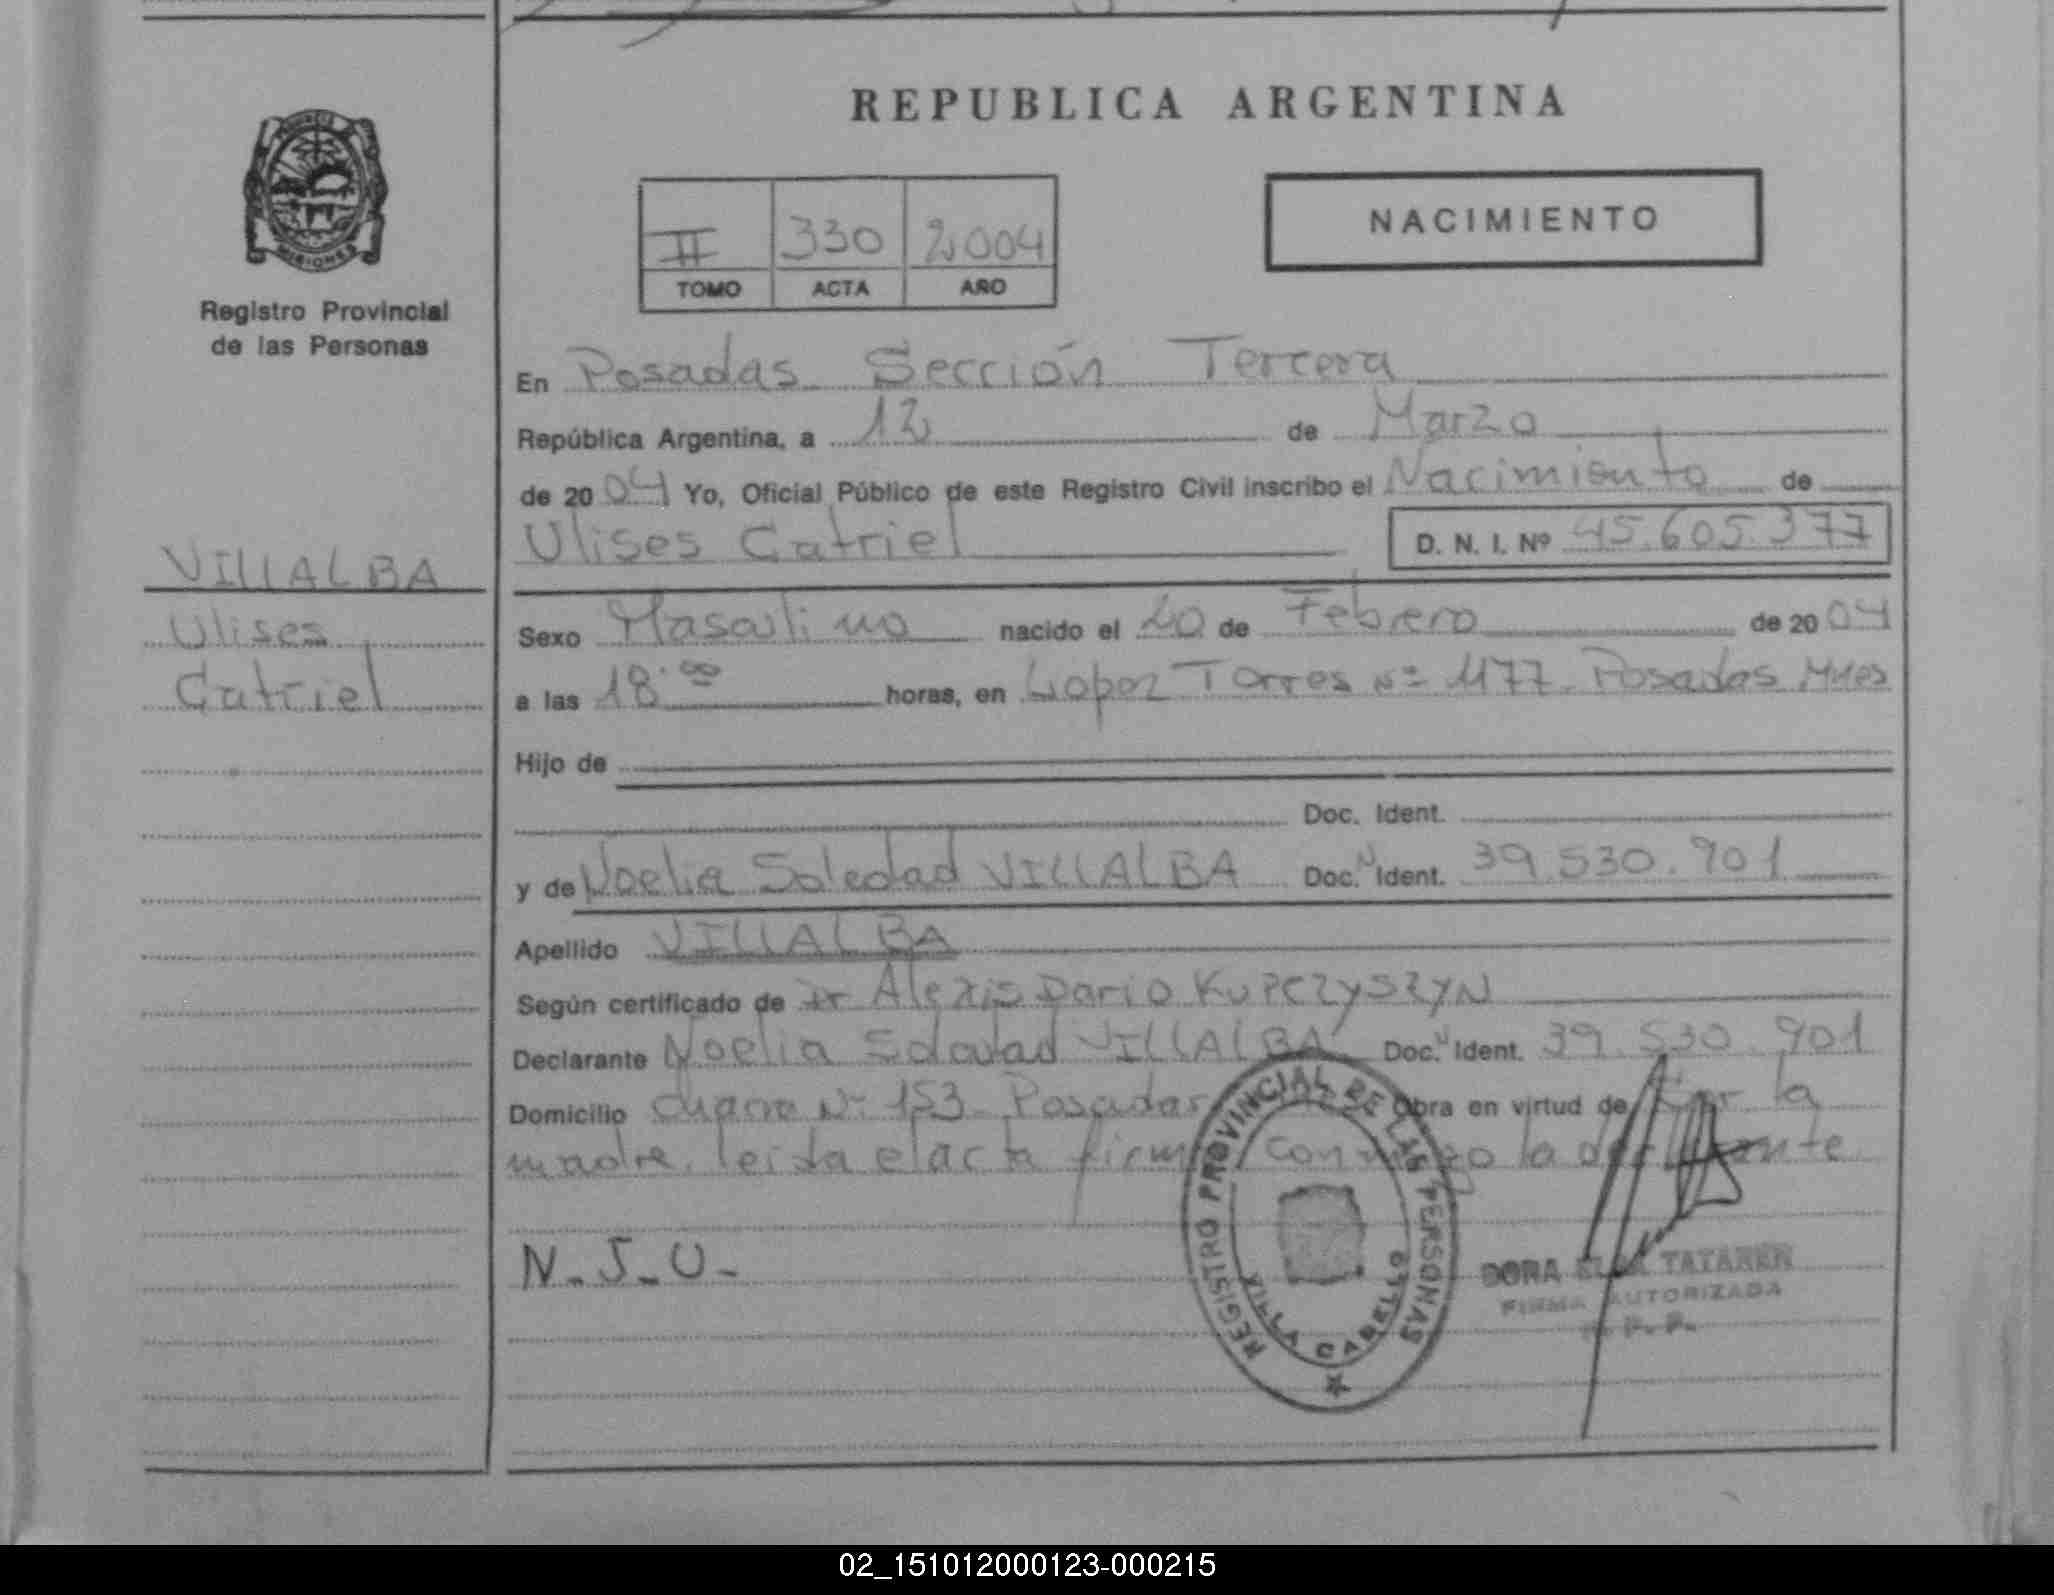 REPUBLICA ARGENTINA
PROVINCIA
MISIONES
Registro Provincial
de las Personas
II 330 2004
TOMO ACTA AÑO
NACIMIENTO
En Posadas Sección Tercera
República Argentina, a 12 de Marzo
de 2004 Yo, Oficial Público de este Registro Civil inscribo el Nacimiento de
Ulises Catriel D. N. I. Nº 45.605.377
VILLALBA
Ulises
Catriel
Sexo Masculino nacido el 20 de Febrero de 2004
a las 18:00 horas, en Lopez Torres Nº 1177. Posadas Mnes
Hijo de
Doc. Ident.
y de Noelia Soledad VILLALBA Doc. N Ident. 39.530.901
Apellido VILLALBA
Según certificado de Dr Alexis Dario KUPCZYSZYN
Declarante Noelia Soledad VILLALBA Doc. N Ident. 39.530.901
Domicilio Nº 153 Posadas Obra en virtud de la
madre, leida el acta firma conmigo la declarante
N_J_U_
REGISTRO PROVINCIAL DE LAS PERSONAS
VILLA CABELLO
DORA ELSA
FIRMA AUTORIZADA
R. P. P.
02_151012000123-000215